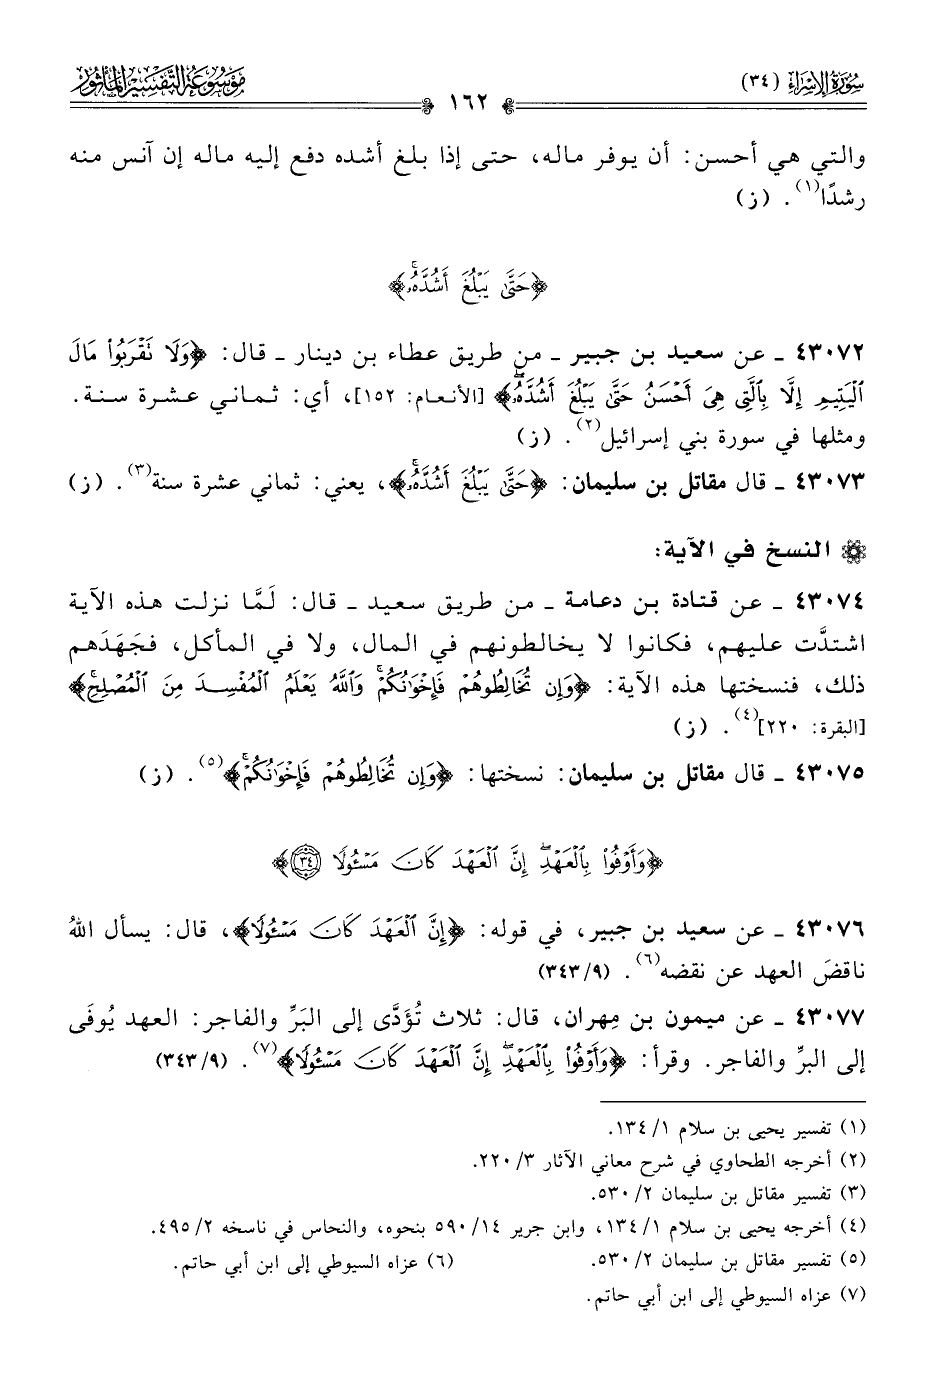 سُورَةُ الإِسْرَاءِ (٣٤)
١٦٢
مَوْسُوعَةُ التَّفْسِيرِ المَأْثُورِ
والتي هي أحسن: أن يوفر ماله، حتى إذا بلغ أشده دفع إليه ماله إن آنس منه
رشدًا(١). (ز)
﴿حَتَّىٰ يَبْلُغَ أَشُدَّهُۥۚ﴾
٤٣٠٧٢ ـ عن سعيد بن جبير ـ من طريق عطاء بن دينار ـ قال: ﴿وَلَا نَقْرَبُوا۟ مَالَ
ٱلْيَتِيمِ إِلَّا بِٱلَّتِى هِىَ أَحْسَنُ حَتَّىٰ يَبْلُغَ أَشُدَّهُۥۖ﴾ [الأنعام: ١٥٢]، أي: ثماني عشرة سنة.
ومثلها في سورة بني إسرائيل(٢). (ز)
٤٣٠٧٣ ـ قال مقاتل بن سليمان: ﴿حَتَّىٰ يَبْلُغَ أَشُدَّهُۥۚ﴾، يعني: ثماني عشرة سنة(٣). (ز)
النسخ في الآية:
٤٣٠٧٤ ـ عن قتادة بن دعامة ـ من طريق سعيد ـ قال: لَمَّا نزلت هذه الآية
اشتدَّت عليهم، فكانوا لا يخالطونهم في المال، ولا في المأكل، فجَهَدَهم
ذلك، فنسختها هذه الآية: ﴿وَإِن تُخَالِطُوهُمْ فَإِخْوَٰنُكُمْۚ وَٱللَّهُ يَعْلَمُ ٱلْمُفْسِدَ مِنَ ٱلْمُصْلِحِۚ﴾
[البقرة: ٢٢٠](٤). (ز)
٤٣٠٧٥ ـ قال مقاتل بن سليمان: نسختها: ﴿وَإِن تُخَالِطُوهُمْ فَإِخْوَٰنُكُمْۚ﴾(٥). (ز)
﴿وَأَوْفُوا۟ بِٱلْعَهْدِۖ إِنَّ ٱلْعَهْدَ كَانَ مَسْـُٔولًا ٣٤﴾
٤٣٠٧٦ ـ عن سعيد بن جبير، في قوله: ﴿إِنَّ ٱلْعَهْدَ كَانَ مَسْـُٔولًا﴾، قال: يسأل اللهُ
ناقضَ العهد عن نقضه(٦). (٩/ ٣٤٣)
٤٣٠٧٧ ـ عن ميمون بن مِهران، قال: ثلاث تُؤَدَّى إلى البَرِّ والفاجر: العهد يُوفَى
إلى البرِّ والفاجر. وقرأ: ﴿وَأَوْفُوا۟ بِٱلْعَهْدِۖ إِنَّ ٱلْعَهْدَ كَانَ مَسْـُٔولًا﴾(٧). (٩/ ٣٤٣)
(١) تفسير يحيى بن سلام ١/ ١٣٤.
(٢) أخرجه الطحاوي في شرح معاني الآثار ٣/ ٢٢٠.
(٣) تفسير مقاتل بن سليمان ٢/ ٥٣٠.
(٤) أخرجه يحيى بن سلام ١/ ١٣٤، وابن جرير ١٤/ ٥٩٠ بنحوه، والنحاس في ناسخه ٢/ ٤٩٥.
(٥) تفسير مقاتل بن سليمان ٢/ ٥٣٠. (٦) عزاه السيوطي إلى ابن أبي حاتم.
(٧) عزاه السيوطي إلى ابن أبي حاتم.